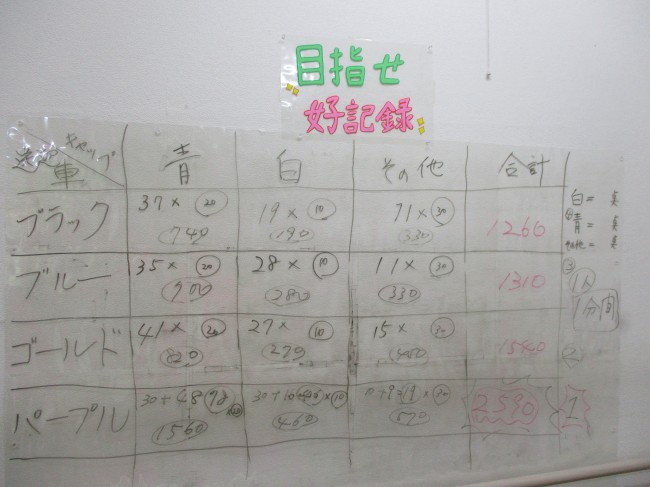 目指せ
好記録
キャップ 車 青 白 その他 合計
ブラック 37 × 20 19 × 10 11 × 30 1260
740 190 330
ブルー 35 × 20 28 × 10 11 × 30 1310
700 280 330
ゴールド 41 × 20 27 × 10 15 × 1540
820 270
パープル 30+48 78 30+16 × 10 2590 1
1560 460 570
白=
青=
1人
1分間